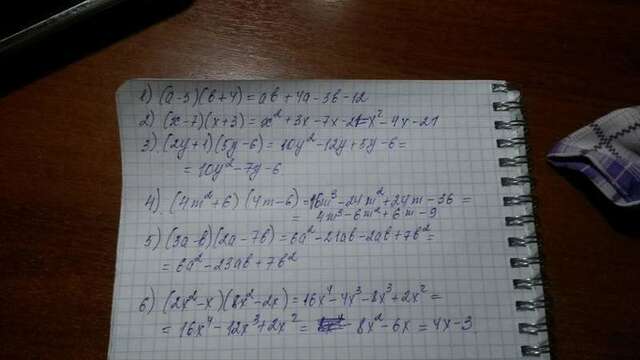 1) (a-3)(b+4)=ab+4a-3b-12
2) (x-7)(x+3)=x²+3x-7x-21=x²-4x-21
3) (2y+1)(5y-6)=10y²-12y+5y-6=
=10y²-7y-6
4) (4m²+6)(4m-6)=16m³-24m²+24m-36=
=4m³-6m²+6m-9
5) (3a-b)(2a-7b)=6a²-21ab-2ab+7b²=
=6a²-23ab+7b²
6) (2x²-x)(8x²-2x)=16x⁴-4x³-8x³+2x²=
=16x⁴-12x³+2x²= 8x²-6x=4x-3